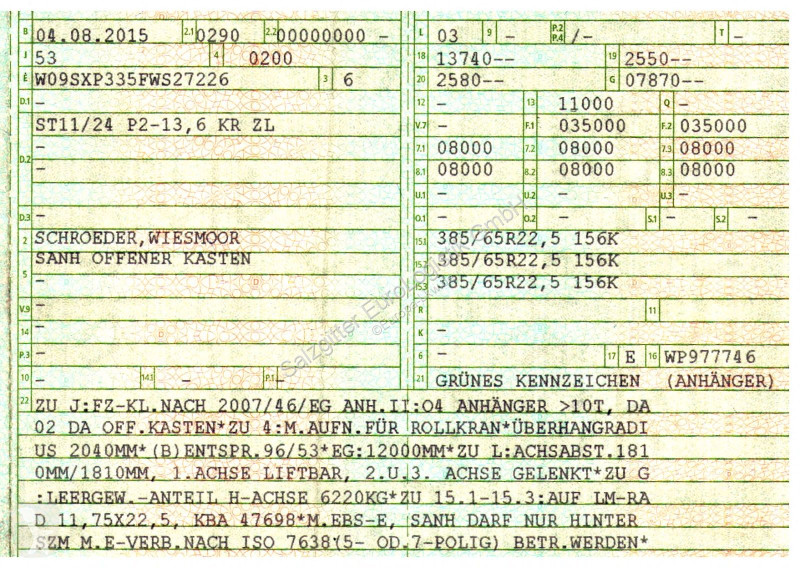 B 04.08.2015 2.1 0290 2.2 00000000 -
J 53 4 0200
E W09SXP335FWS27226 3 6
D.1 -
D.2 ST11/24 P2-13,6 KR ZL
-
-
-
D.3 -
2 SCHROEDER,WIESMOOR
5 SANH OFFENER KASTEN
-
V.9 -
14 -
P.3 -
10 - 14.1 - P.1 -
L 03 9 - P.2 P.4 /- T -
18 13740-- 19 2550--
20 2580-- G 07870--
12 - 13 11000 Q -
V.7 - F.1 035000 F.2 035000
7.1 08000 7.2 08000 7.3 08000
8.1 08000 8.2 08000 8.3 08000
U.1 - U.2 - U.3 -
O.1 - O.2 - S.1 - S.2 -
15.1 385/65R22,5 156K
15.2 385/65R22,5 156K
15.3 385/65R22,5 156K
R - 11
K -
6 - 17 E 16 WP977746
21 GRÜNES KENNZEICHEN (ANHÄNGER)
22 ZU J:FZ-KL.NACH 2007/46/EG ANH.II:O4 ANHÄNGER >10T, DA
02 DA OFF.KASTEN*ZU 4:M.AUFN.FÜR ROLLKRAN*ÜBERHANGRADI
US 2040MM*(B)ENTSPR.96/53*EG:12000MM*ZU L:ACHSABST.181
0MM/1810MM, 1.ACHSE LIFTBAR, 2.U.3. ACHSE GELENKT*ZU G
:LEERGEW.-ANTEIL H-ACHSE 6220KG*ZU 15.1-15.3:AUF LM-RA
D 11,75X22,5, KBA 47698*M.EBS-E, SANH DARF NUR HINTER
SZM M.E-VERB.NACH ISO 7638(5- OD.7-POLIG) BETR.WERDEN*
Salzgitter EuroLogistik GmbH